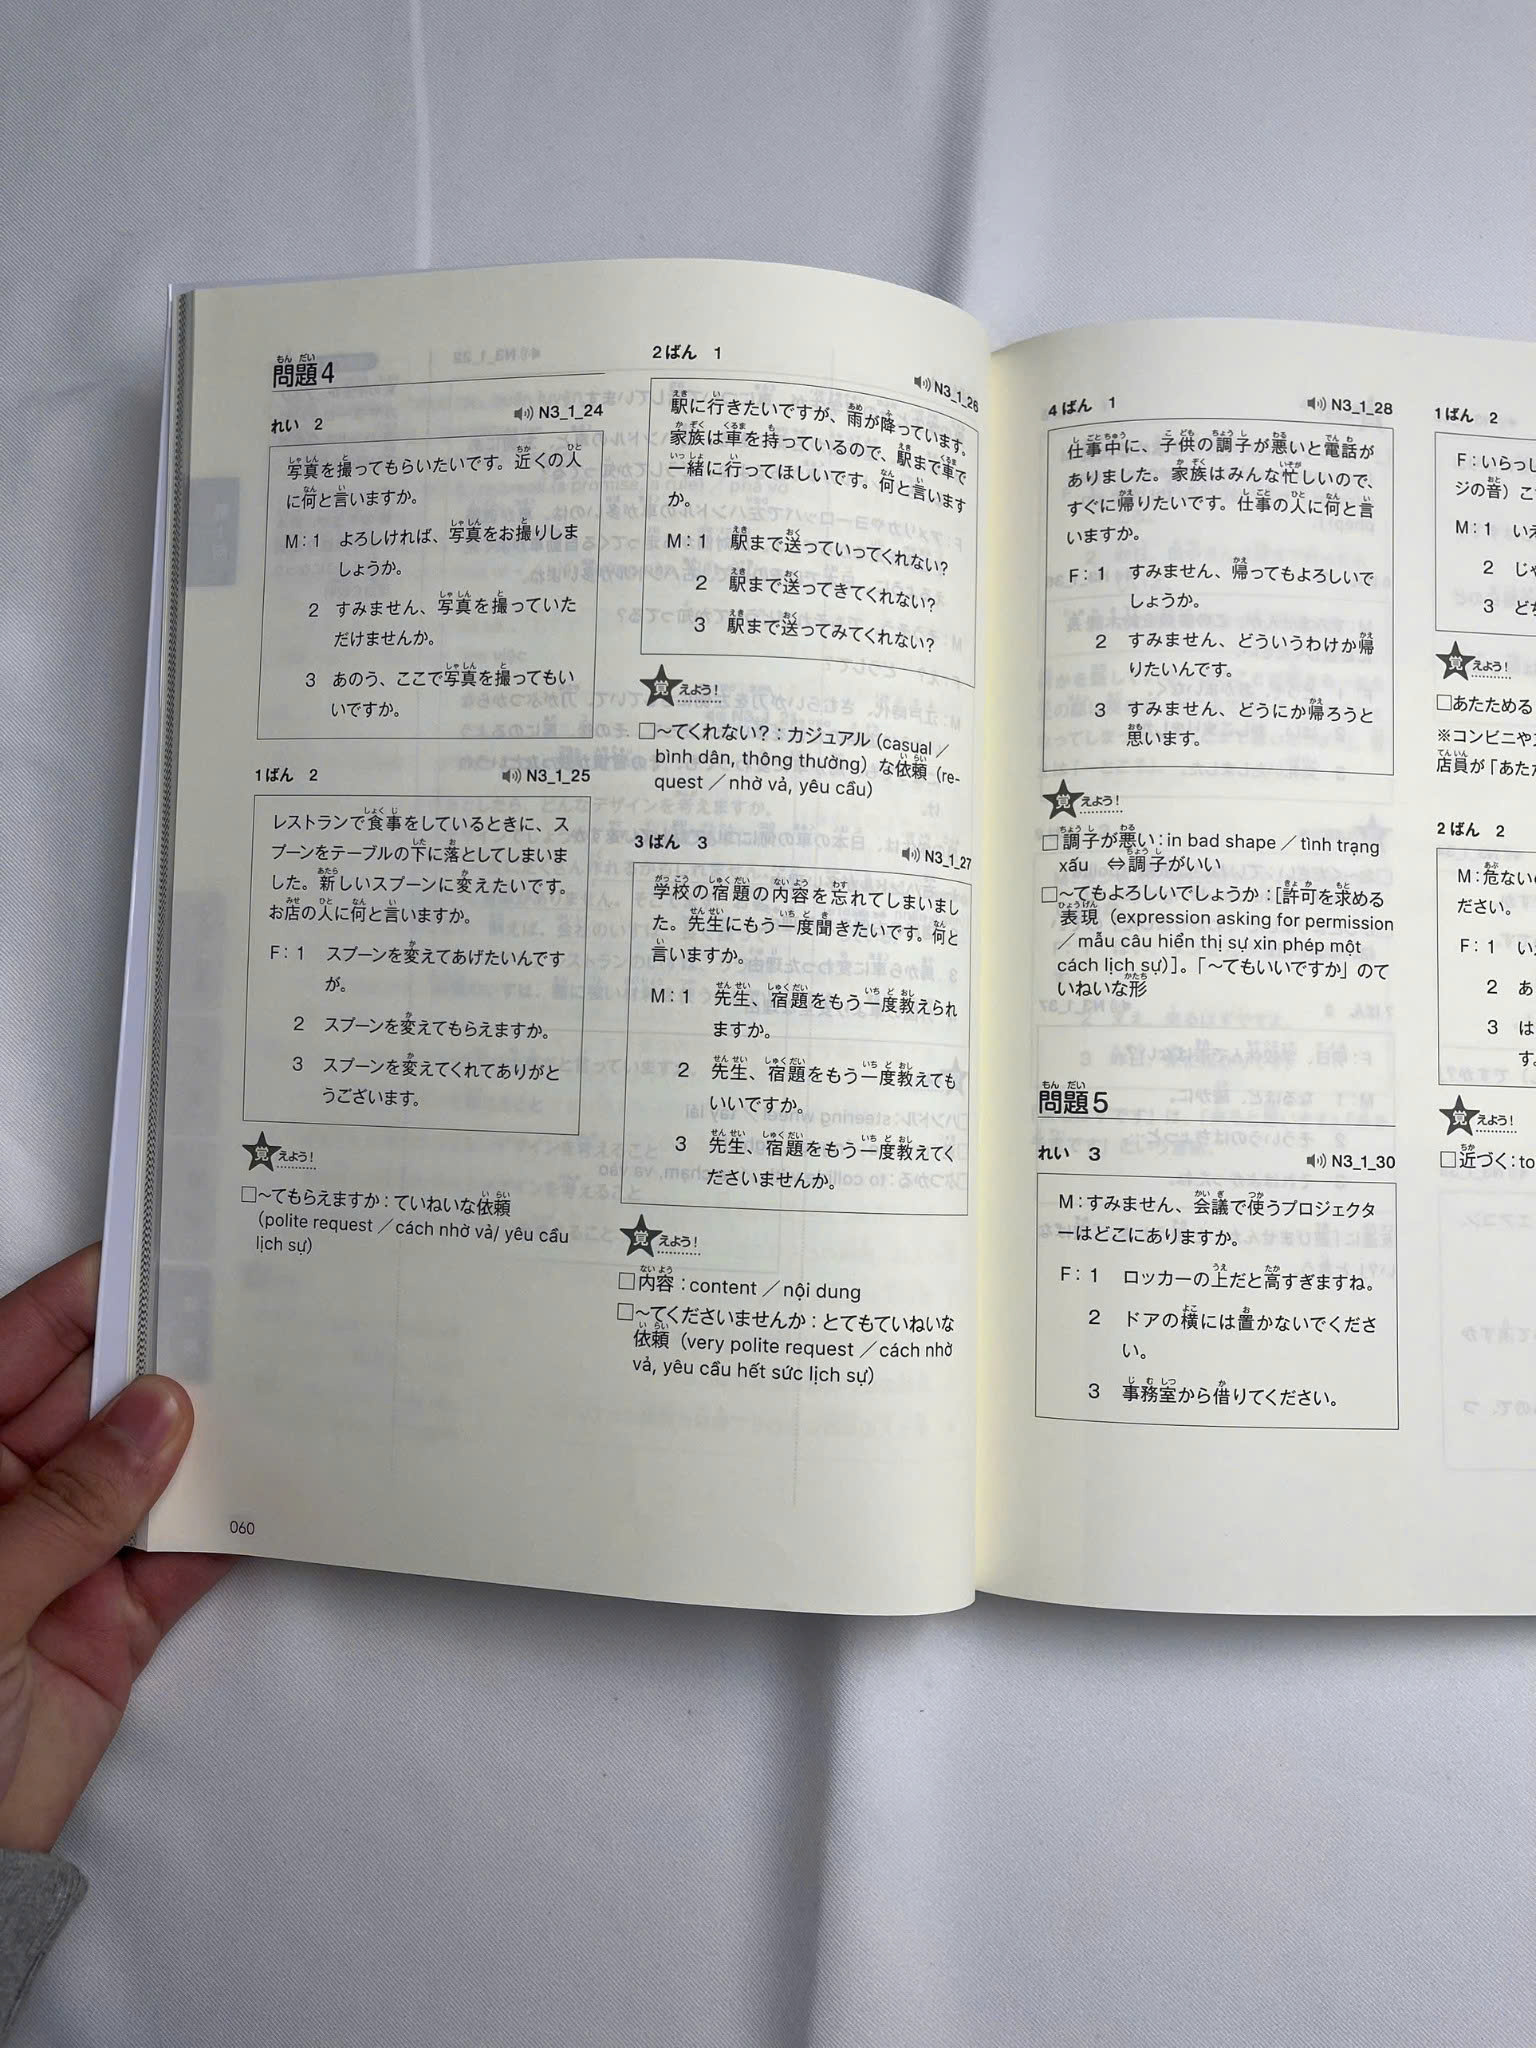 問題4
れい 2
N3_1_24
写真を撮ってもらいたいです。近くの人
に何と言いますか。
M：1 よろしければ、写真をお撮りしま
しょうか。
2 すみません、写真を撮っていた
だけませんか。
3 あのう、ここで写真を撮ってもい
いですか。
1ばん 2
N3_1_25
レストランで食事をしているときに、ス
プーンをテーブルの下に落としてしまいま
した。新しいスプーンに変えたいです。
お店の人に何と言いますか。
F：1 スプーンを変えてあげたいんです
が。
2 スプーンを変えてもらえますか。
3 スプーンを変えてくれてありがと
うございます。
覚えよう！
□〜てもらえますか：ていねいな依頼
（polite request／cách nhờ vả/ yêu cầu
lịch sự）
2ばん 1
N3_1_26
駅に行きたいですが、雨が降っています。
家族は車を持っているので、駅まで車で
一緒に行ってほしいです。何と言います
か。
M：1 駅まで送っていってくれない？
2 駅まで送ってきてくれない？
3 駅まで送ってみてくれない？
覚えよう！
□〜てくれない？：カジュアル（casual／
bình dân, thông thường）な依頼（re-
quest／nhờ vả, yêu cầu）
3ばん 3
N3_1_27
学校の宿題の内容を忘れてしまいまし
た。先生にもう一度聞きたいです。何と
言いますか。
M：1 先生、宿題をもう一度教えられ
ますか。
2 先生、宿題をもう一度教えても
いいですか。
3 先生、宿題をもう一度教えてく
ださいませんか。
覚えよう！
□内容：content／nội dung
□〜てくださいませんか：とてもていねいな
依頼（very polite request／cách nhờ
vả, yêu cầu hết sức lịch sự）
060
4ばん 1
N3_1_28
仕事中に、子供の調子が悪いと電話が
ありました。家族はみんな忙しいので、
すぐに帰りたいです。仕事の人に何と言
いますか。
F：1 すみません、帰ってもよろしいで
しょうか。
2 すみません、どういうわけか帰
りたいんです。
3 すみません、どうにか帰ろうと
思います。
覚えよう！
□調子が悪い：in bad shape／tình trạng
xấu ⇔調子がいい
□〜てもよろしいでしょうか：［許可を求める
表現（expression asking for permission
／mẫu câu hiển thị sự xin phép một
cách lịch sự）］。「〜てもいいですか」のて
いねいな形
問題5
れい 3
N3_1_30
M：すみません、会議で使うプロジェクタ
ーはどこにありますか。
F：1 ロッカーの上だと高すぎますね。
2 ドアの横には置かないでくださ
い。
3 事務室から借りてください。
1ばん 2
F：いらっし
ジの音）こ
M：1 いえ
2 じゃ
3 ど
覚えよう！
□あたためる
※コンビニや
店員が「あたか
2ばん 2
M：危ないの
ださい。
F：1 い
2 あ
3 は
す。
覚えよう！
□近づく：to